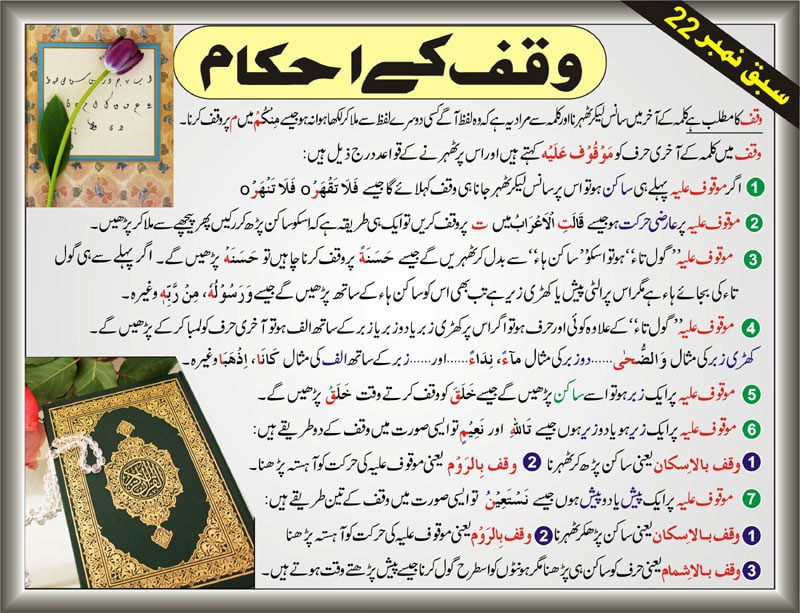 سبق نمبر 22
وقف کے احکام
وقف کا مطلب ہے کلمہ کے آخر میں سانس لیکر ٹھہرنا اور کلمہ سے مراد یہ ہے کہ وہ لفظ آگے کسی دوسرے لفظ سے ملا کر لکھا ہوا نہ ہو جیسے مِنْکُمْ میں م پر وقف کرنا۔
وقف میں کلمہ کے آخری حرف کو مَوْقُوْف عَلَيْه کہتے ہیں اور اس پر ٹھہرنے کے قواعد درج ذیل ہیں:
1 اگر موقوف علیہ پہلے ہی ساکن ہو تو اس پر سانس لیکر ٹھہر جانا ہی وقف کہلائے گا جیسے فَلَا تَقْهَرْ o فَلَا تَنْهَرْ o
2 موقوف علیہ پر عارضی حرکت ہو جیسے قَالَتِ الْاَعْرَابُ میں ت پر وقف کریں تو ایک ہی طریقہ ہے کہ اسکو ساکن پڑھ کر رکیں پھر پیچھے سے ملا کر پڑھیں۔
3 موقوف علیہ ”گول تاء“ ہو تو اسکو ”ساکن ہاء“ سے بدل کر ٹھہریں گے جیسے حَسَنَةً پر وقف کرنا چاہیں تو حَسَنَهْ پڑھیں گے۔ اگر پہلے سے ہی گول
تاء کی بجائے ہاء ہے مگر اس پر الٹی پیش یا کھڑی زیر ہے تب بھی اس کو ساکن ہاء کے ساتھ پڑھیں گے جیسے وَرَسُوْلُهٗ، مِنْ رَّبِّهٖ وغیرہ۔
4 موقوف علیہ ”گول تاء“ کے علاوہ کوئی اور حرف ہو تو اگر اس پر کھڑی زبر یا دو زبر یا زبر کے ساتھ الف ہو تو آخری حرف کو لمبا کر کے پڑھیں گے۔
کھڑی زبر کی مثال وَالضُّحٰی ...... دو زبر کی مثال مَآءً، نِدَاءً ...... اور ...... زبر کے ساتھ الف کی مثال کَانَا، اِذْهَبَا وغیرہ۔
5 موقوف علیہ پر ایک زبر ہو تو اسے ساکن پڑھیں گے جیسے خَلَقَ کو وقف کرتے وقت خَلَقْ پڑھیں گے۔
6 موقوف علیہ پر ایک زیر ہو یا دو زیر ہوں جیسے تَاللهِ اور نَعِيْمٍ تو ایسی صورت میں وقف کے دو طریقے ہیں:
1 وقف بالاسکان یعنی ساکن پڑھ کر ٹھہرنا 2 وقف بِالرَّوْم یعنی موقوف علیہ کی حرکت کو آہستہ پڑھنا۔
7 موقوف علیہ پر ایک پیش یا دو پیش ہوں جیسے نَسْتَعِيْنُ تو ایسی صورت میں وقف کے تین طریقے ہیں:
1 وقف بالاسکان یعنی ساکن پڑھکر ٹھہرنا 2 وقف بِالرَّوْم یعنی موقوف علیہ کی حرکت کو آہستہ پڑھنا
3 وقف بالاشمام یعنی حرف کو ساکن ہی پڑھنا مگر ہونٹوں کو اسطرح گول کرنا جیسے پیش پڑھتے وقت ہوتے ہیں۔